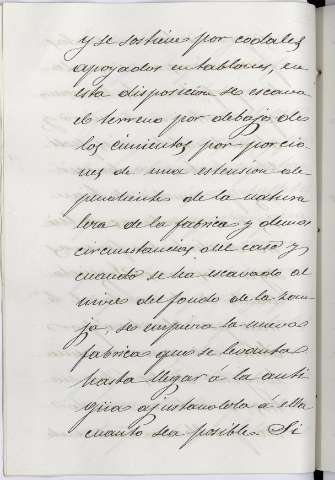 y se sostiene por codales
apoyados en tablones, en
esta disposicion se escava
el terreno por debajo de
los cimientos por porcio
nes de una estension de
pendiente de la natura
leza de la fabrica y demas
circunstancias del caso y
cuando se ha escavado al
nivel del fondo de la zan
ja, se empieza la nueva
fabrica que se levanta
hasta llegar á la anti
gua ajustandola á ella
cuanto sea posible. Si